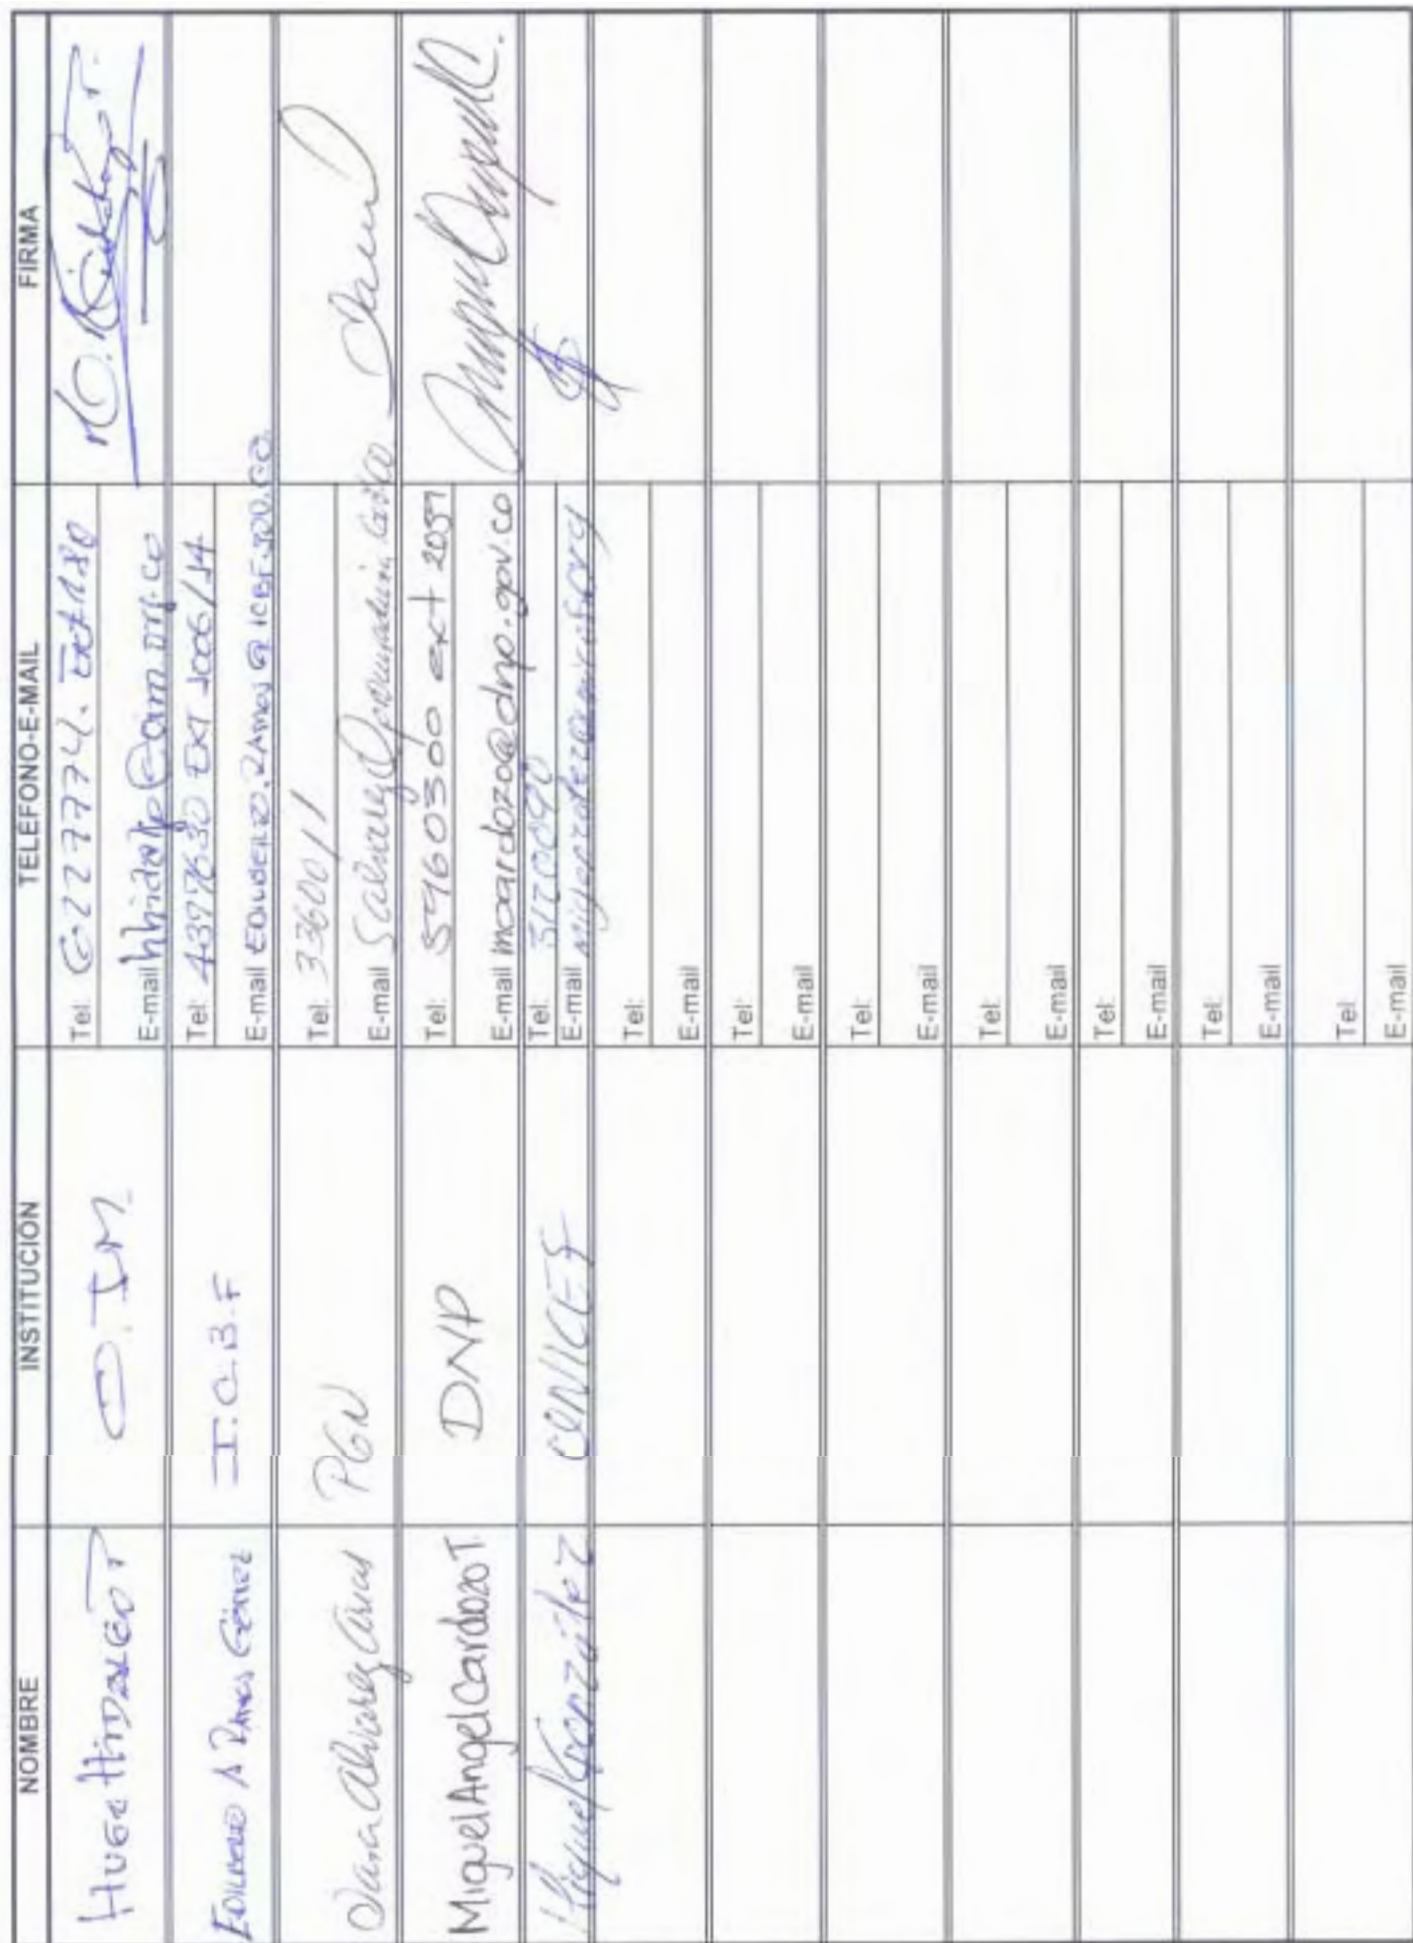 NOMBRE INSTITUCIÓN TELÉFONO-E-MAIL FIRMA
HUGO HIDALGO T O.I.M. Tel: 6227774. Ext 180
E-mail hhidalgo@oim.org.co
EDILBERTO A RAMOS GÓMEZ I.C.B.F Tel: 4377630 EXT
E-mail EDILBERTO.RAMOS@ICBF.GOV.CO
Alvarez Arias PGN Tel: 3360011
E-mail
Miguel Angel Cardozo T. DNP Tel: 5960300 ext
E-mail mcardozo@dnp.gov.co
Miguel González Tel: 3120090
E-mail
Tel:
E-mail
Tel:
E-mail
Tel:
E-mail
Tel:
E-mail
Tel:
E-mail
Tel:
E-mail
Tel:
E-mail